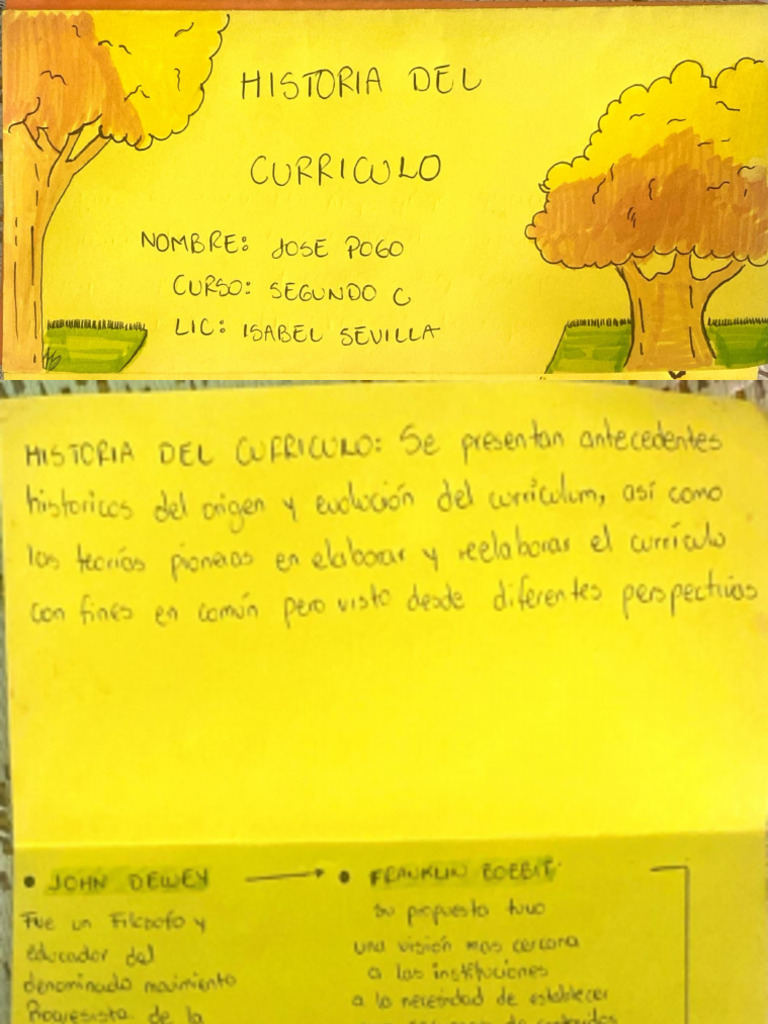 HISTORIA DEL
CURRICULO
NOMBRE: JOSE POGO
CURSO: SEGUNDO C
LIC: ISABEL SEVILLA
HISTORIA DEL CURRICULO: Se presentan antecedentes
historicos del origen y evolución del currículum, así como
las teorías pioneras en elaborar y reelaborar el currículo
con fines en común pero visto desde diferentes perspectivas
• JOHN DEWEY → • FRANKLIN BOBBIT
Fue un Filosofo y
educador del
denominado movimiento
Progresista de la
su propuesta tuvo
una visión mas cercana
a las instituciones
a la necesidad de establecer